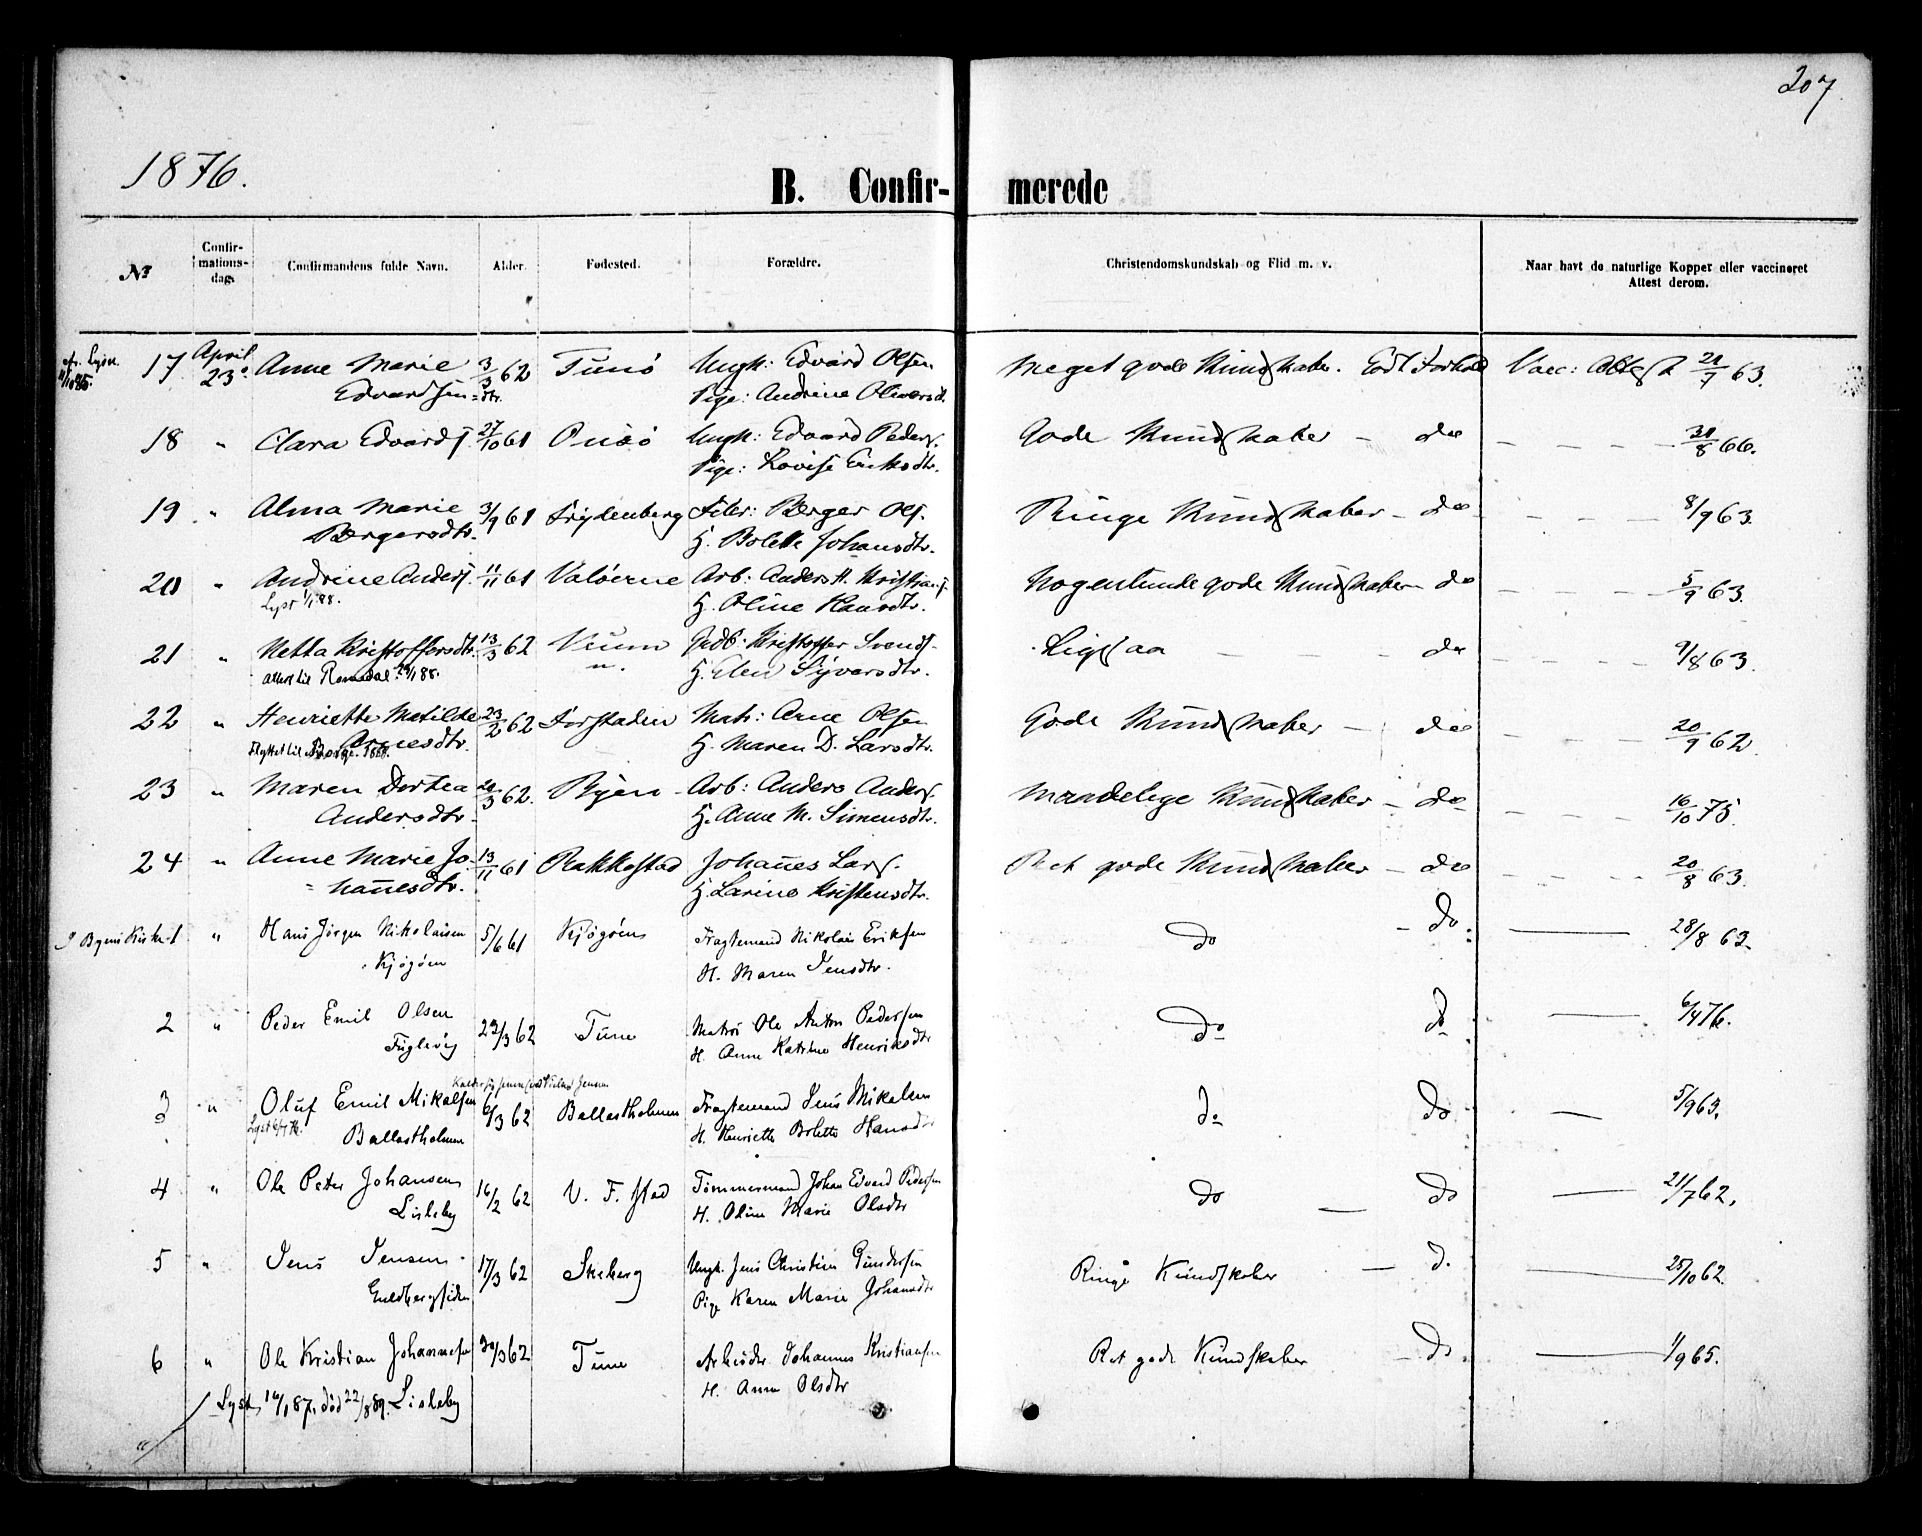 207
1876.
B. Confir- merede
No
Confir-
mations-
dag.
Confirmandens fulde Navn.
Alder.
Fødested.
Forældre.
Christendomskundskab og Flid m. v.
Naar havt de naturlige Kopper eller vaccineret
Attest derom.
17 April 23 Anne Marie 3/3 62 Tunø Ungk: Edvard Olsen Meget gode Kundskaber. Godt Forhold Vacc: Attest 21/7 63.
Edvardsen-dtr. Pige: Andrine Oliversd.
18 " Clara Edvards. 27/10 61 Onsø Ungk: Edvard Peders. Gode Kundskaber - do - - - 31/8 66.
Pige: Lovise Eriksdtr.
19 " Alma Marie 3/9 61 Frydenberg Filer: Berger Ols. Ringe Kundskaber - do - - - 8/9 63.
Bergersdtr. H. Bolette Johansdtr.
20 " Andrine Anders. 11/11 61 Valøerne Arb: Anders H. Kristians. Nogenlunde gode Kundskaber - do - - - 5/9 63.
Lyst 1/1 88. H. Oline Hansdtr.
21 " Netta Kristoffersdtr. 13/3 62 Veum Grdb. Kristoffer Svends. Ligesaa - - - do - - - 9/8 63.
Attest til Romsdal 24/1 88. H. Elen Syversdtr.
22 " Henriette Matilde 23/2 62 Forstaden Matr: Arne Olsen Gode Kundskaber - do - - - 20/9 62
Arnesdtr. H. Maren D. Larsdtr.
Flyttet til Borge 1888.
23 " Maren Dortea 20/3 62. Byen - Arb: Anders Anders. Maadelige Kundskaber - do - - - 16/10 75.
Andersdtr. H. Anne M. Simensdtr.
24 " Anne Marie Jo- 13/11 61 Rakkestad Johannes Lars. Ret gode Kundskaber - do - - - 20/8 63.
hannesdtr. H. Larine Kristensdtr.
I Byens Kirke 1 " Hans Jørgen Nikolaisen 5/6 61 Kjøgøen Fragtemand Nikolai Eriksen do - do. 28/8 63.
Kjøgøen H. Maren Jensdtr.
2 " Peder Emil Olsen 22/3 62 Tune Matrs Ole Anton Pedersen do do 6/4 76.
Fuglevig H. Anne Katrine Henriksdtr
3 " Oluf Emil Mikalsen 6/3 62 Ballastholmen Fragtemand Jens Mikalsen do do 5/9 63.
Lyst 6/4 76. Ballastholmen H. Henriette Bolette Hansdtr
4 " Ole Peter Johansen 16/2 62 V. F.stad Tømmermand Johan Edvard Pedersen do do 21/7 62.
Lisleby H. Oline Marie Olsdtr
5 " Jens Jensen 17/3 62 Skeberg Ungk. Jens Christian Gundersen Ringe Kundskaber - do. 25/10 62.
Guldbergsiden Pige Karen Marie Johansdtr
6 " Ole Kristian Johannesen 30/3 62 Tune Arbeider Johannes Kristiansen Ret gode Kundskaber - do 1/9 65.
Lisleby H. Anne Olsdtr
Lyst 16/1 87, død 22/8 89.